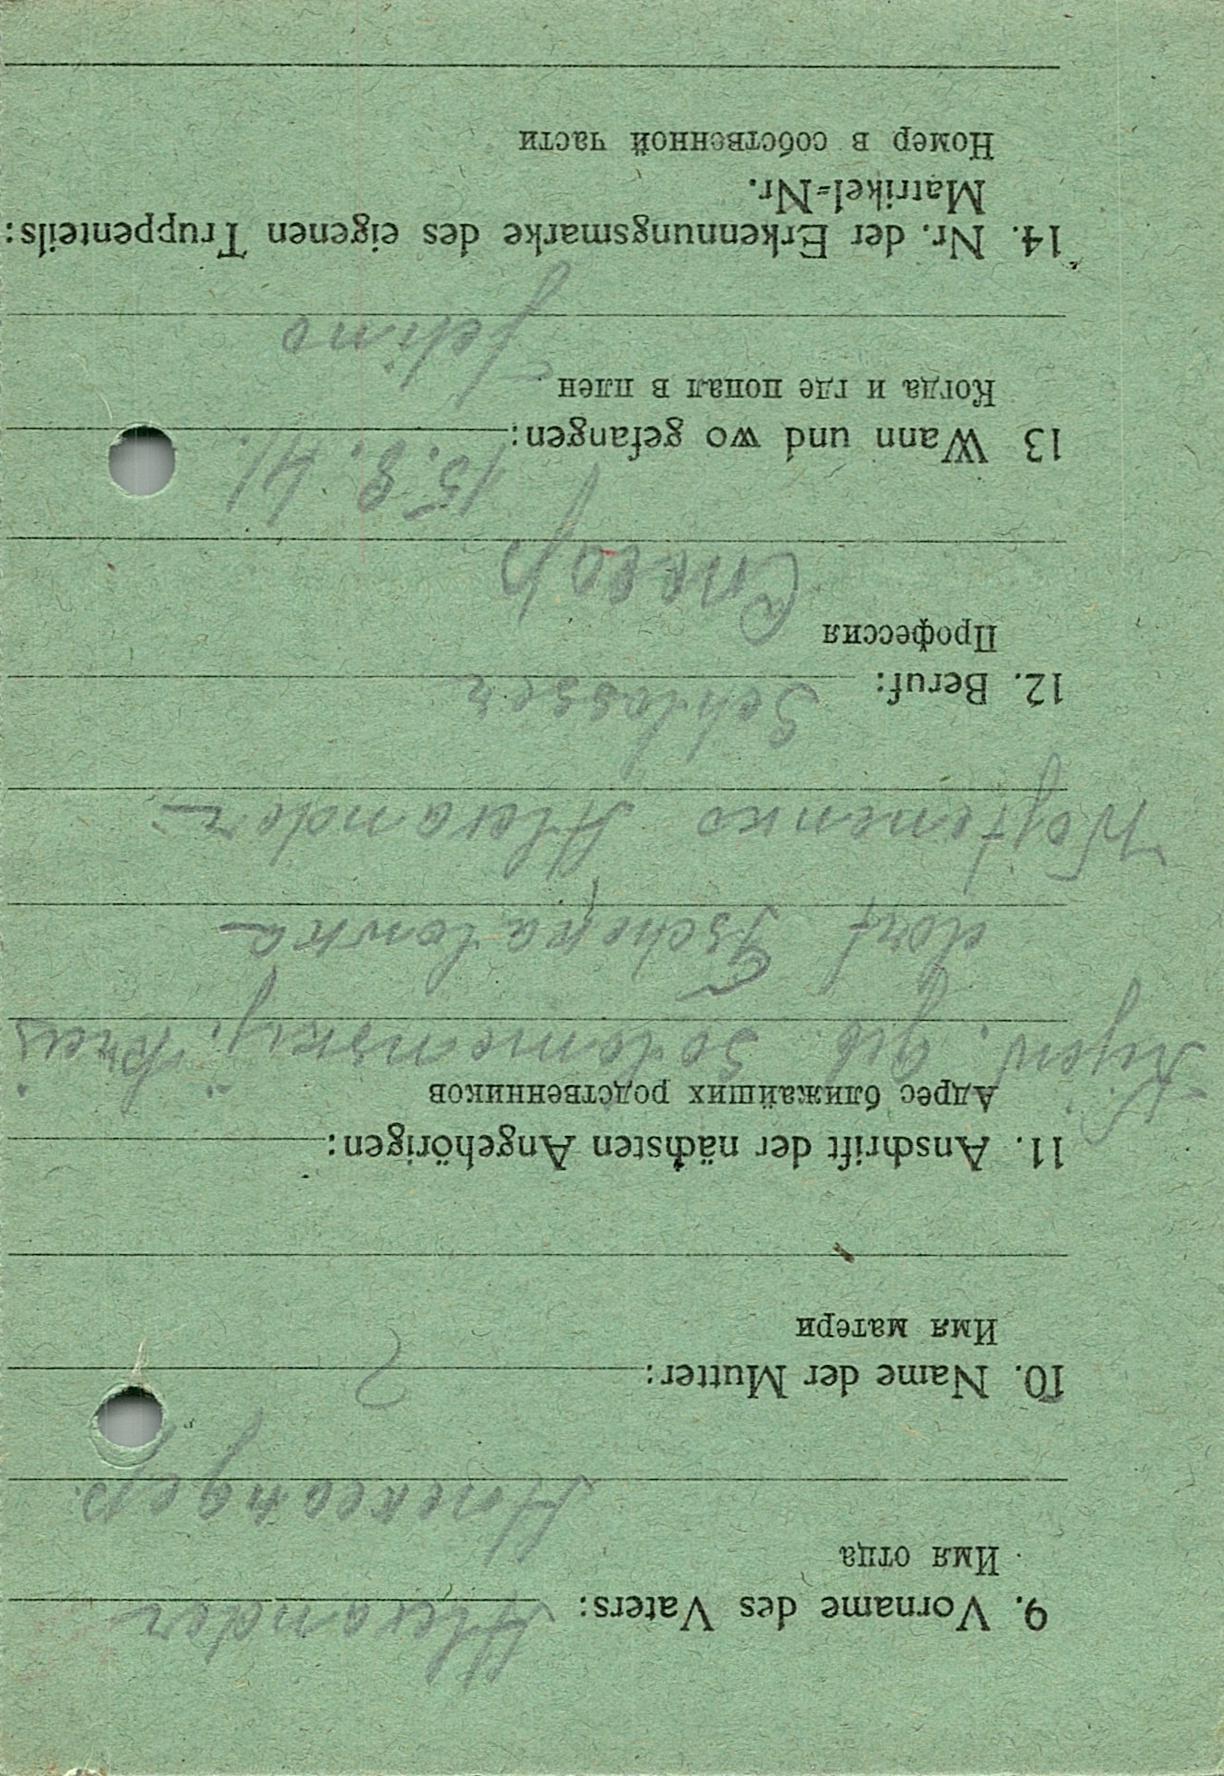 9. Vorname des Vaters: Alexander
Имя отца
Александр.
10. Name der Mutter: ?
Имя матери
11. Anschrift der nächsten Angehörigen:
Адрес ближайших родственников
Kijew. geb. Solomenskij. Kreis
dorf Tschokalowka
Wojtenko Alexander
12. Beruf: Schlosser
Профессия
Слесарь
13 Wann und wo gefangen: 15. 8. 41.
Когда и где попал в плен
14. Nr. der Erkennungsmarke des eigenen Truppenteils:
Matrikel-Nr.
Номер в собственной части